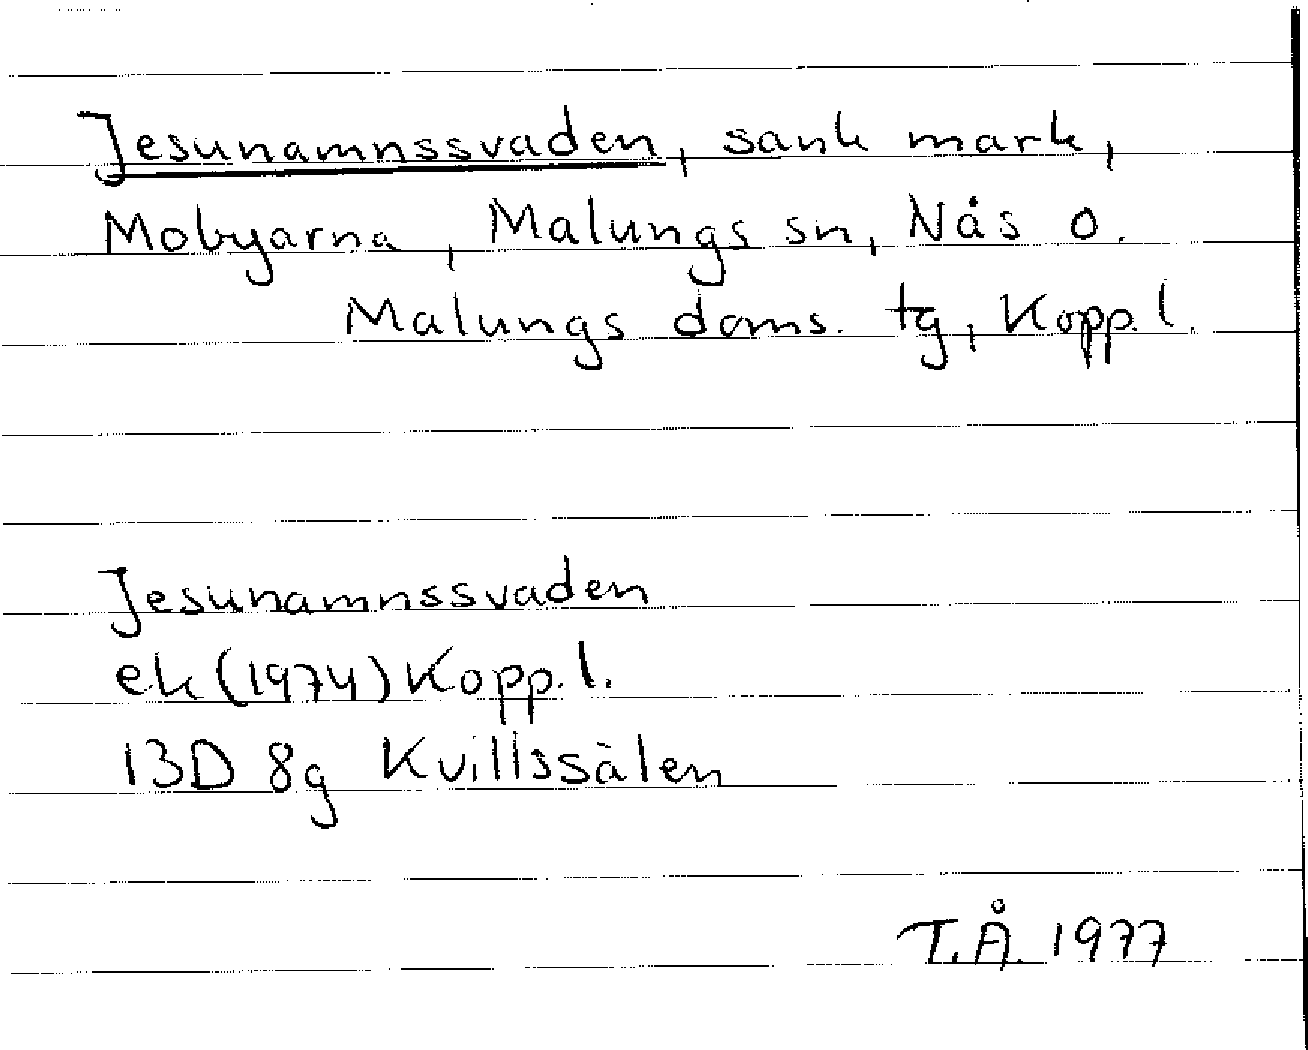 Jesunamnssvaden, sank mark,
Mobyarna, Malungs sn, Nås o.
Malungs doms. tg, Kopp. l.
Jesunamnssvaden
ek (1974) Kopp. l.
13D 8g Kvillssälen
T.Å. 1977